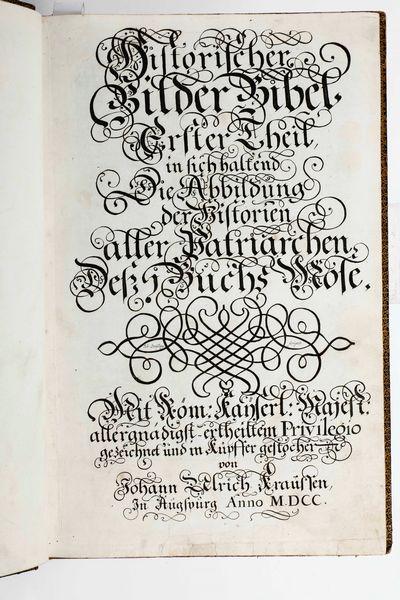 Historischer
Bilder Bibel.
Erster Theil,
in sich haltend
Die Abbildung
der Historien
aller Patriarchen,
Deß 1. Buchs Mose.
Mit Röm: Kayserl: Majest:
allergnädigst-ertheiltem Privilegio
gezeichnet und in Kupffer gestochen
von
Johann Ulrich Kraussen,
In Augspurg Anno MDCC.